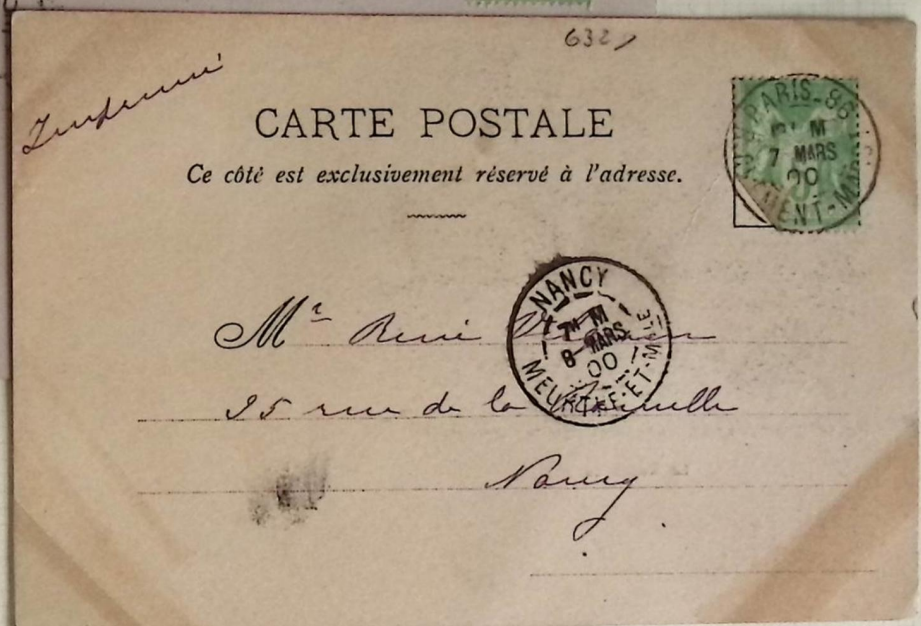 632
Imprimé
CARTE POSTALE
Ce côté est exclusivement réservé à l'adresse.
PARIS-86
M
7 MARS
00
NANCY
7ᴴ M
8 MARS
00
MEURTHE-ET-MLLE
Mr René
rue de la
Nancy